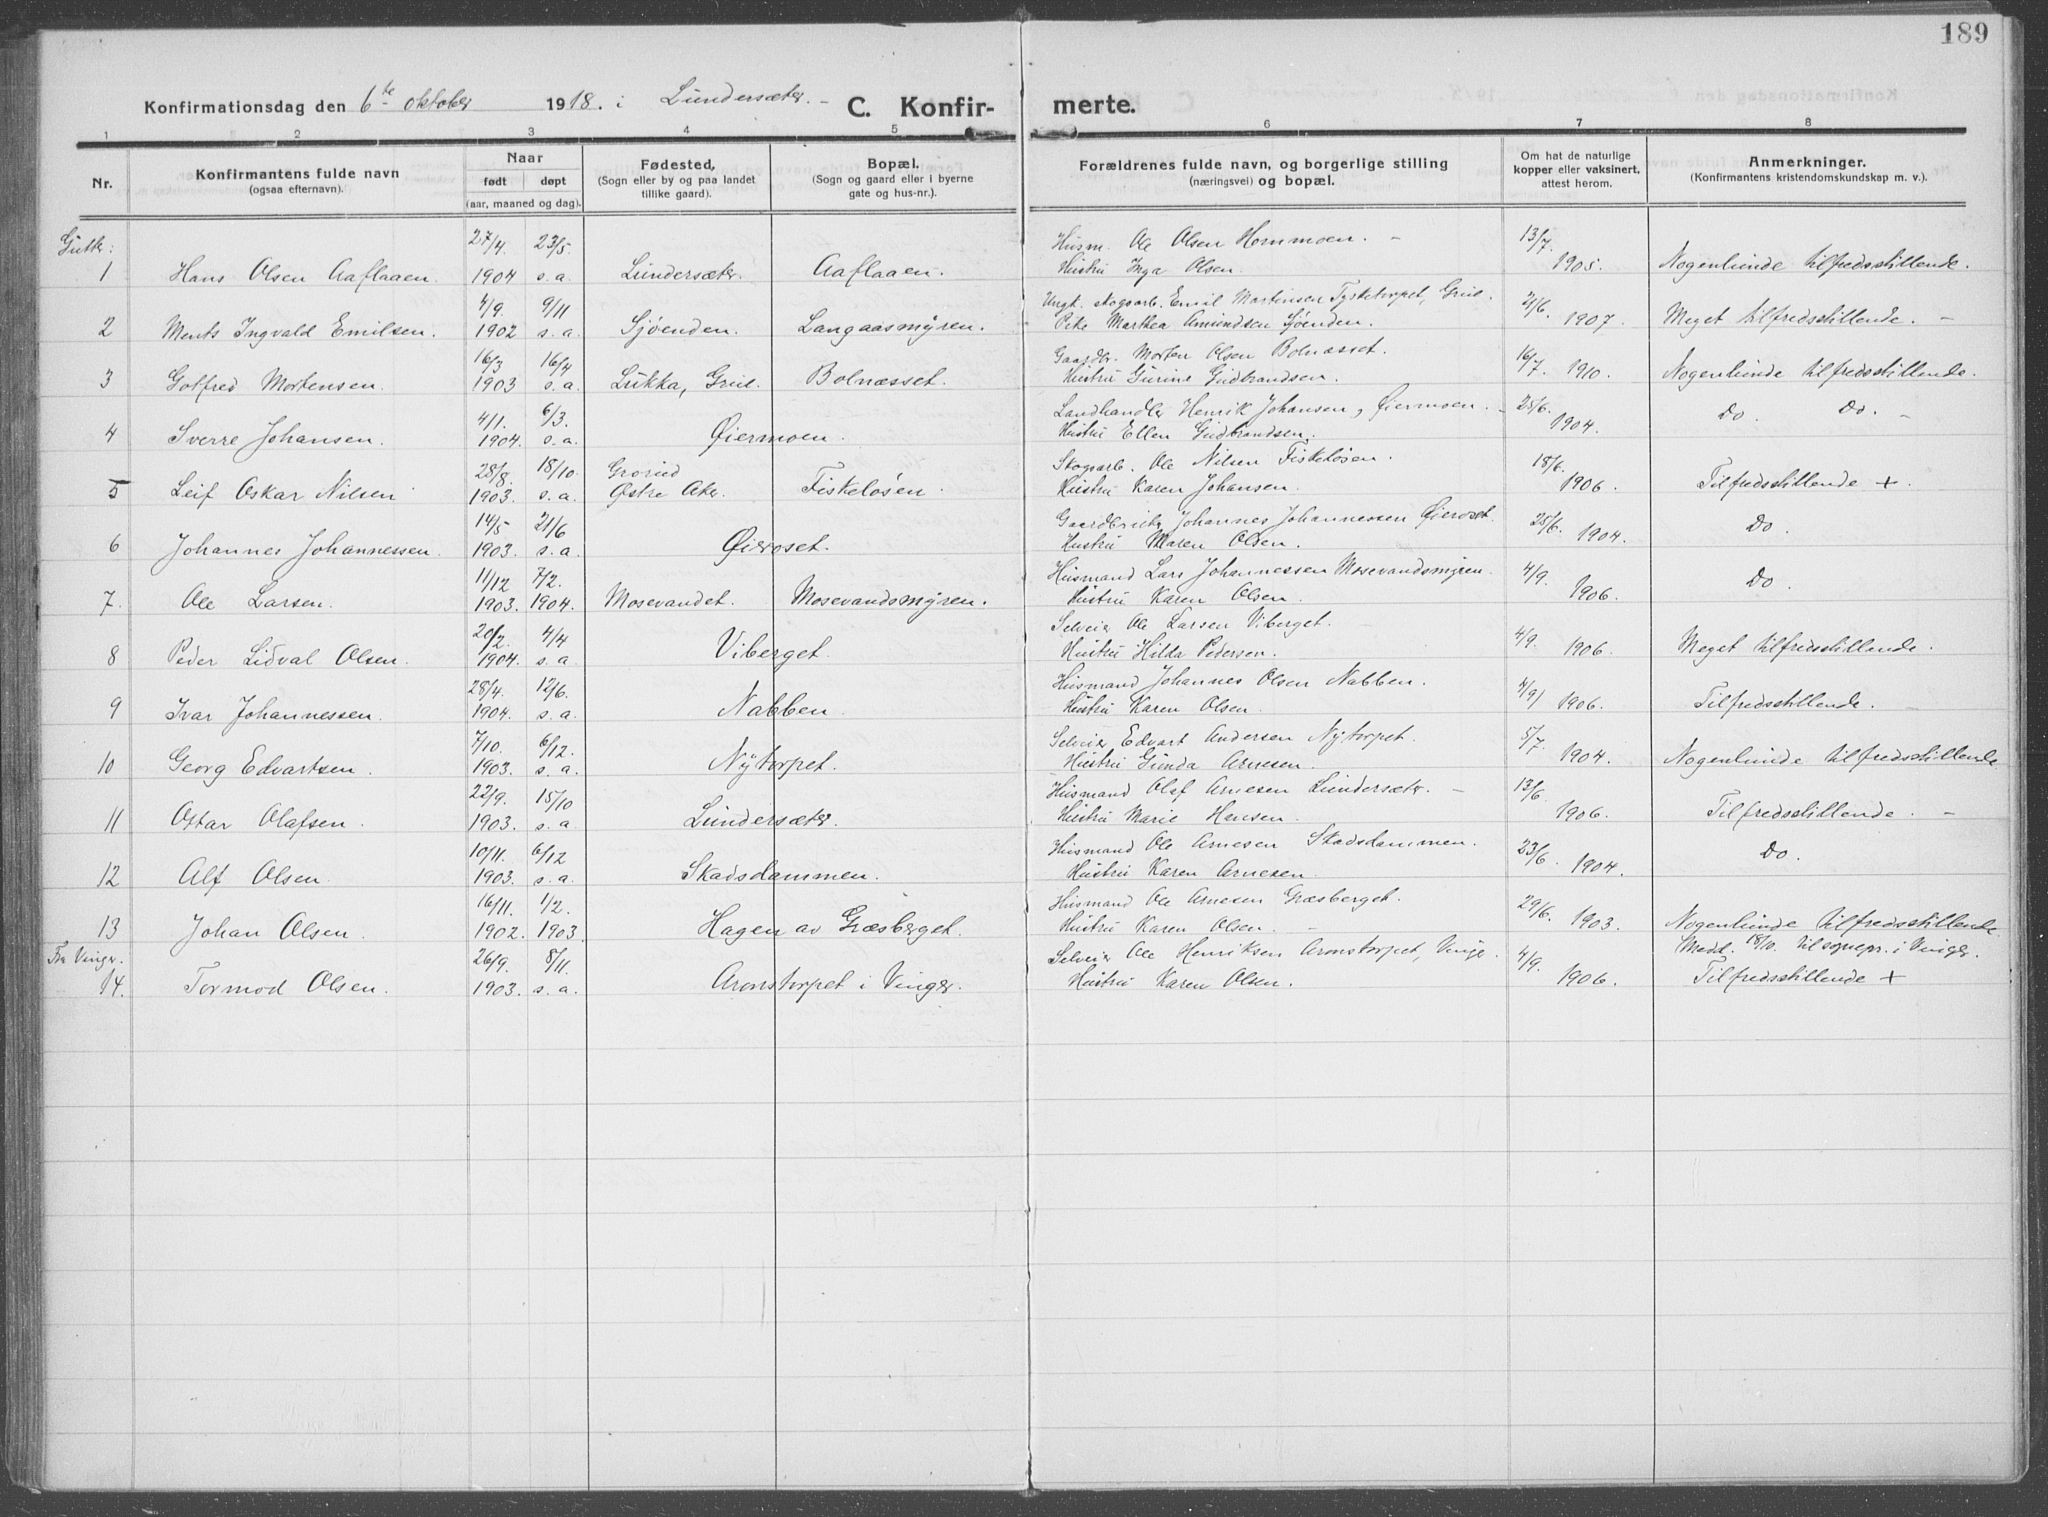 189
Konfirmationsdag den 6te oktober 1918. i Lundersæter. – C. Konfir- merte.
1 2 3 4 5 6 7 8
Nr. Konfirmantens fulde navn (ogsaa efternavn). Naar født døpt (aar, maaned og dag). Fødested, (Sogn eller by og paa landet tillike gaard). Bopæl. (Sogn og gaard eller i byerne gate og hus-nr.). Forældrenes fulde navn, og borgerlige stilling (næringsvei) og bopæl. Om hat de naturlige kopper eller vaksinert, attest herom. Anmerkninger. (Konfirmantens kristendomskundskap m. v.).
Gutter: 27/4. 23/5. Husm. Ole Olsen Hommoen. – 13/7.
1 Hans Olsen Aaflaaen. 1904 s. a. Lundersæter. Aaflaaen. Hustru Inga Olsen. 1905. Nogenlunde tilfredsstillende.
4/9. 9/11 Ungk. skogsarb. Emil Martinsen Tysketorpet, Grue. 21/6.
2 Ments Ingvald Emilsen. 1902 s. a. Sjøenden. Langaasmyren. Pike Marthea Amundsen Sjøenden. 1907. Meget tilfredsstillende. –
16/3 16/4 Gaardbr. Morten Olsen Bolnæsset. 16/7.
3 Gotfred Mortensen. 1903 s. a. Lukka, Grue. Bolnæsset. Hustru Gurine Gudbrandsen. 1910. Nogenlunde tilfredsstillende.
4/1. 6/3. Landhandler Henrik Johansen, Øiermoen. – 25/6. Do Do. –
4 Sverre Johansen. 1904. s. a. Øiermoen. Hustru Ellen Gudbrandsen. 1904.
28/8. 18/10. Grorud Skogsarb. Ole Nilsen Fiskeløsen. 18/6.
5 Leif Oskar Nilsen 1903. s. a. Østre Aker. Fiskeløsen. Hustru Karen Johansen. 1906. Tilfredsstillende +.
14/5 21/6 Gaardbruker Johannes Johannessen Øieroset. 28/6. Do
6 Johannes Johannessen. 1903. s. a. Øieroset. Hustru Maren Olsen. 1904.
11/12 7/2. Husmand Lars Johannessen Mosevandsmyren. 4/9. Do
7. Ole Larsen. 1903. 1904. Mosevandet. Mosevandsmyren. Hustru Karen Olsen. 1906.
20/2. 4/4 Selveier Ole Larsen Viberget. 4/9.
8 Peder Lidval Olsen. 1904. s. a. Viberget. Hustru Hilda Pedersen. 1906. Meget tilfredsstillende.
28/4. 12/6. Husmand Johannes Olsen Nabben. 4/9
9 Ivar Johannessen. 1904. s. a. Nabben. Hustru Karen Olsen. 1906. Tilfredsstillende. –
7/10. 6/12. Selveier Edvart Andersen Nytorpet. 5/7.
10 Georg Edvartsen. 1903. s. a. Nytorpet. Hustru Gunda Arnesen. 1904. Nogenlunde tilfredsstillende
22/9. 15/10 Husmand Olaf Arnesen Lundersæter. – 13/6.
11 Oskar Olafsen. 1903. s. a. Lundersæter. Hustru Marie Hansen. 1906. Tilfredsstillende. –
10/11. 6/12 Husmand Ole Arnesen Skadsdammen. 23/6. Do.
12 Alf Olsen. 1903. s. a. Skadsdammen. Hustru Karen Arnesen. 1904.
16/11. 1/2. Husmand Ole Arnesen Græsberget. 29/6.
13 Johan Olsen. 1902. 1903. Hagen av Græsberget. Hustru Karen Olsen. – 1903. Nogenlunde tilfredsstillende.
Fra Vinger. 26/9. 8/11. Selveier Ole Henriksen Aronstorpet, Vinger. 4/9. Medd. 18/10. til sognepr. i Vinger.
14. Tormod Olsen. 1903. s. a. Aronstorpet i Vinger. Hustru Karen Olsen. 1906. Tilfredsstillende +